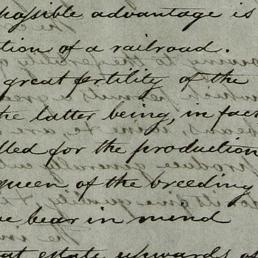 possible advantage is
tion of a railroad.
great fertility of the
the latter being, in fac
lled for the production
queen of the breeding
we bear in mind
at estate upwards of